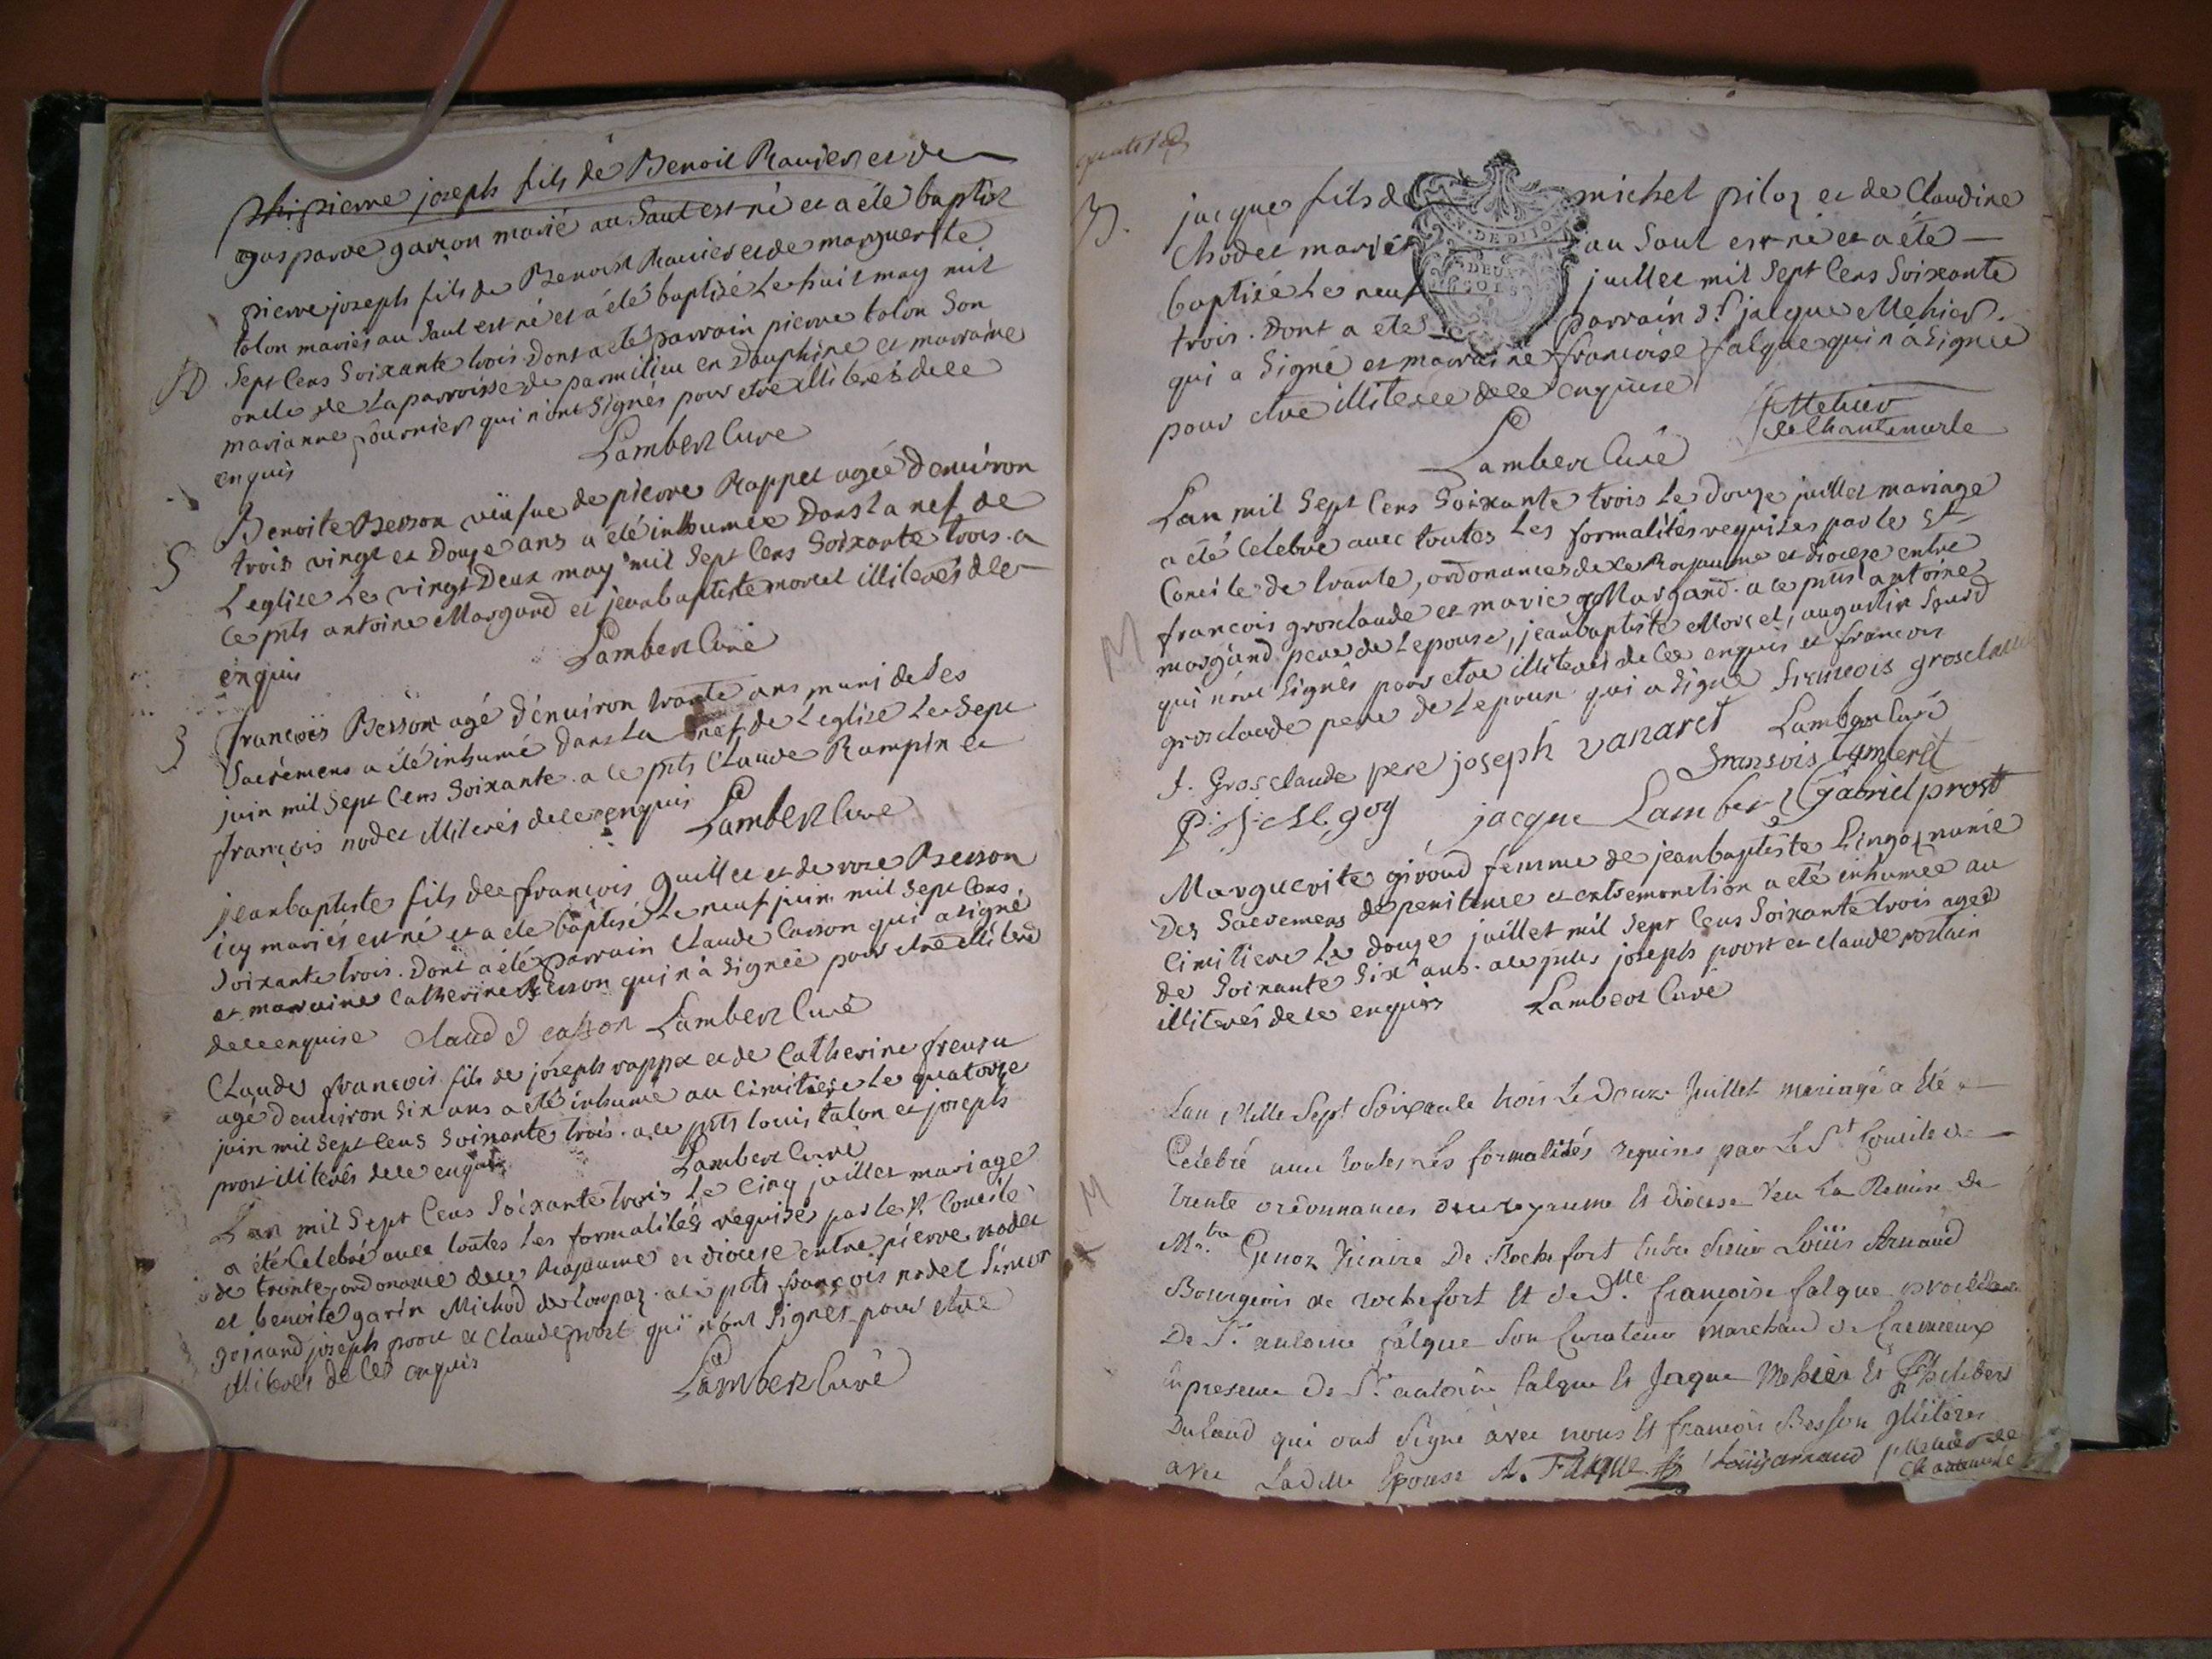 pierre joseph fils de Benoit Ravier et de
gasparde garçon marié au Saut est né et a été baptisé
pierre joseph fils de Benoist Ravier et de marguerite
talon mariés au Saut est né et a été baptisé Le huit may mil
B Sept Cens Soixante trois. Dont a été parrain pierre talon Son
oncle de La parroisse de parmilieu en Dauphiné et marraine
marianne fournier qui n'ont Signés pour etre illiterés de ce
enquis
Lambert Curé
Benoite Besson veufve de pierre Rappet agée d'environ
trois vingt et Douze ans a été inhumée Dans La nef de
S L'eglise Le vingt Deux may mil Sept Cens Soixante trois. a
Ce pnts antoine Margand et jeanbaptiste morel illiterés de ce
enquis
Lambert Curé
S françois Besson agé d'environ trante ans muni de Ses
Sacremens a été inhumé Dans La nef de L'eglise Le Sept
juin mil Sept Cens Soixante. a ce pnts Claude Rampin et
françois nodet illiterés de ce enquis
Lambert Curé
jeanbaptiste fils de françois guillet et de rose Besson
icy mariés est né et a été baptisé Le neuf juin mil Sept Cens
Soixante trois. Dont a été parrain Claude Casson qui a signé
et marraine Catherine Besson qui n'a Signée pour etre illiteré
de ce enquise Claude casson Lambert Curé
Claude françois fils de joseph rappet et de Catherine
agé d'environ Six ans a été inhumé au Cimitiere Le quatorze
juin mil Sept Cens Soixante trois. a ce pnts louis talon et joseph
prost illiterés de ce enquis
Lambert Curé
L'an mil Sept Cens Soixante trois Le Cinq juillet mariage
a été Celebré avec toutes Les formalités requises par le St. Concile
de trente, ordonance de ce Royaume et diocese entre pierre nodet
et benoite garin Michod de Lompaz. a ce pnts françois nodet Simon
goinand joseph prost et Claude prost qui n'ont Signés pour etre
illiterés de ce enquis
Lambert Curé
B. jacque fils de michel piloz et de Claudine
Chodet mariés au Saut est né et a été
GEN. DE DIJON
DEUX SOLS
baptisé Le neuf juillet mil Sept Cens Soixante
trois. Dont a été parrain Sr. jacque Mehier
qui a Signé et marraine francoise falque qui n'a Signée
pour etre illiterée de ce enquise
Mehier
de Chantemerle
Lambert Curé
L'an mil Sept Cens Soixante trois Le Douze juillet mariage
a été Celebré avec toutes Les formalités requises par le St
Concile de trante, ordonances de ce Royaume et diocese entre
M francois grosclaude et marie Margand. a ce pnts antoine
margand pere de L'epouse, jeanbaptiste Morel, augustin
qui n'ont Signés pour etre illiterés de ce enquis et francois
grosclaude pere de L'epoux qui a Signé francois grosclaude
f. Grosclaude pere joseph vanaret Lambert Curé
fransois lambert
jacque Lambert Gabriel prost
Marguerite giroud femme de jeanbaptiste munie
Des Sacremens de penitence et extremonction a été inhumée au
Cimitiere Le douze juillet mil Sept Cens Soixante trois agée
de Soixante Six ans. a ce pnts joseph prost et claude
illiterés de ce enquis Lambert Curé
L'an Mille Sept Soixante trois Le Douze Juillet mariage a Eté
Celebré avec toutes Les formalités requises par Le St Concile de
M trente ordonnances de ce royaume Et diocese veu La Remise de
Mre. Genoz Vicaire De Rochefort Entre Sieur Louis Arnaud
Bourgeois de rochefort Et de Dlle francoise falque
De Sr. antoine falque Son Curateur Marchand de Cremieux
En presence De Sr. antoine falque Et Jaque Mehier Et
Durand qui ont Signé avec nous Et francois Besson illiteré
avec Ladite Epouse A. Falque Louis arnaud Mehier de
Chantemerle